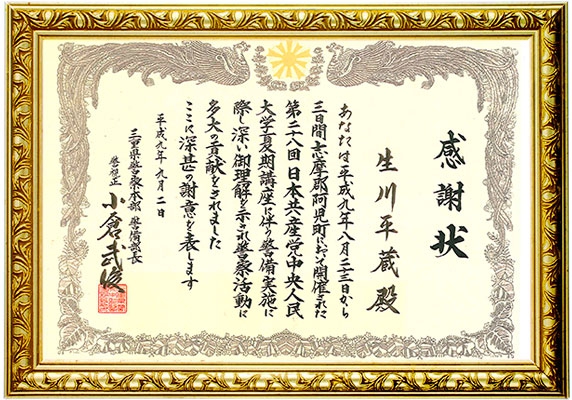 感謝状
生川平蔵殿
あなたは平成九年八月二十三日から
三日間志摩郡阿児町において開催された
第二十八回日本共産党中央人民
大学夏期講座に伴う警備実施に
際し深い御理解を示され警察活動に
多大の貢献をされました
ここに深甚の謝意を表します
平成九年九月二日
三重県警察本部警備部長
警視正 小倉武俊